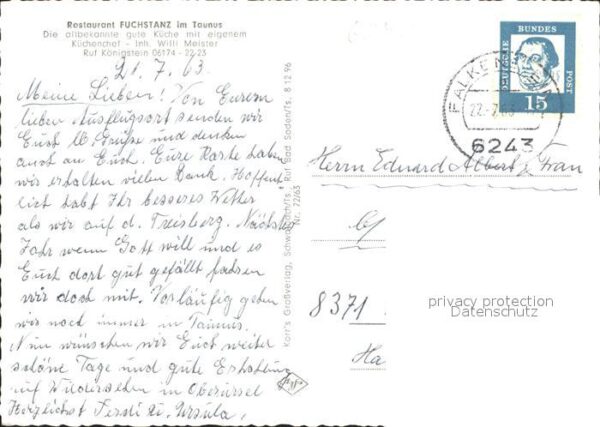 Restaurant FUCHSTANZ im Taunus
Die altbekannte gute Küche mit eigenem
Küchenchef - Inh. Willi Meister
Ruf Königstein 06174 - 22 23
21.7.63.
Meine Lieben! Von Eurem
lieben Ausflugsort senden wir
Euch lb. Grüße und denken
auch an Euch. Eure Karte haben
wir erhalten vielen Dank. Hoffent
lich habt Ihr besseres Wetter
als wir auf d. Treisberg. Nächstes
Jahr wenn Gott will und es
Euch dort gut gefällt fahren
wir doch mit. Vorläufig gehen
wir noch immer in Taunus.
Nun wünschen wir Euch weiter
schöne Tage und gute Erholung
auf Wiedersehen in Oberursel
Herzlichst Ferdi u. Ursula.
Korr's Großverlag, Ruf Bad Soden/Ts. 8 12 96
Nr. 22/63
DEUTSCHE BUNDES POST
15
FALKENST
22.-7.63
6243
Herrn Eduard Albert u. Frau
8371
Ha
privacy protection
Datenschutz